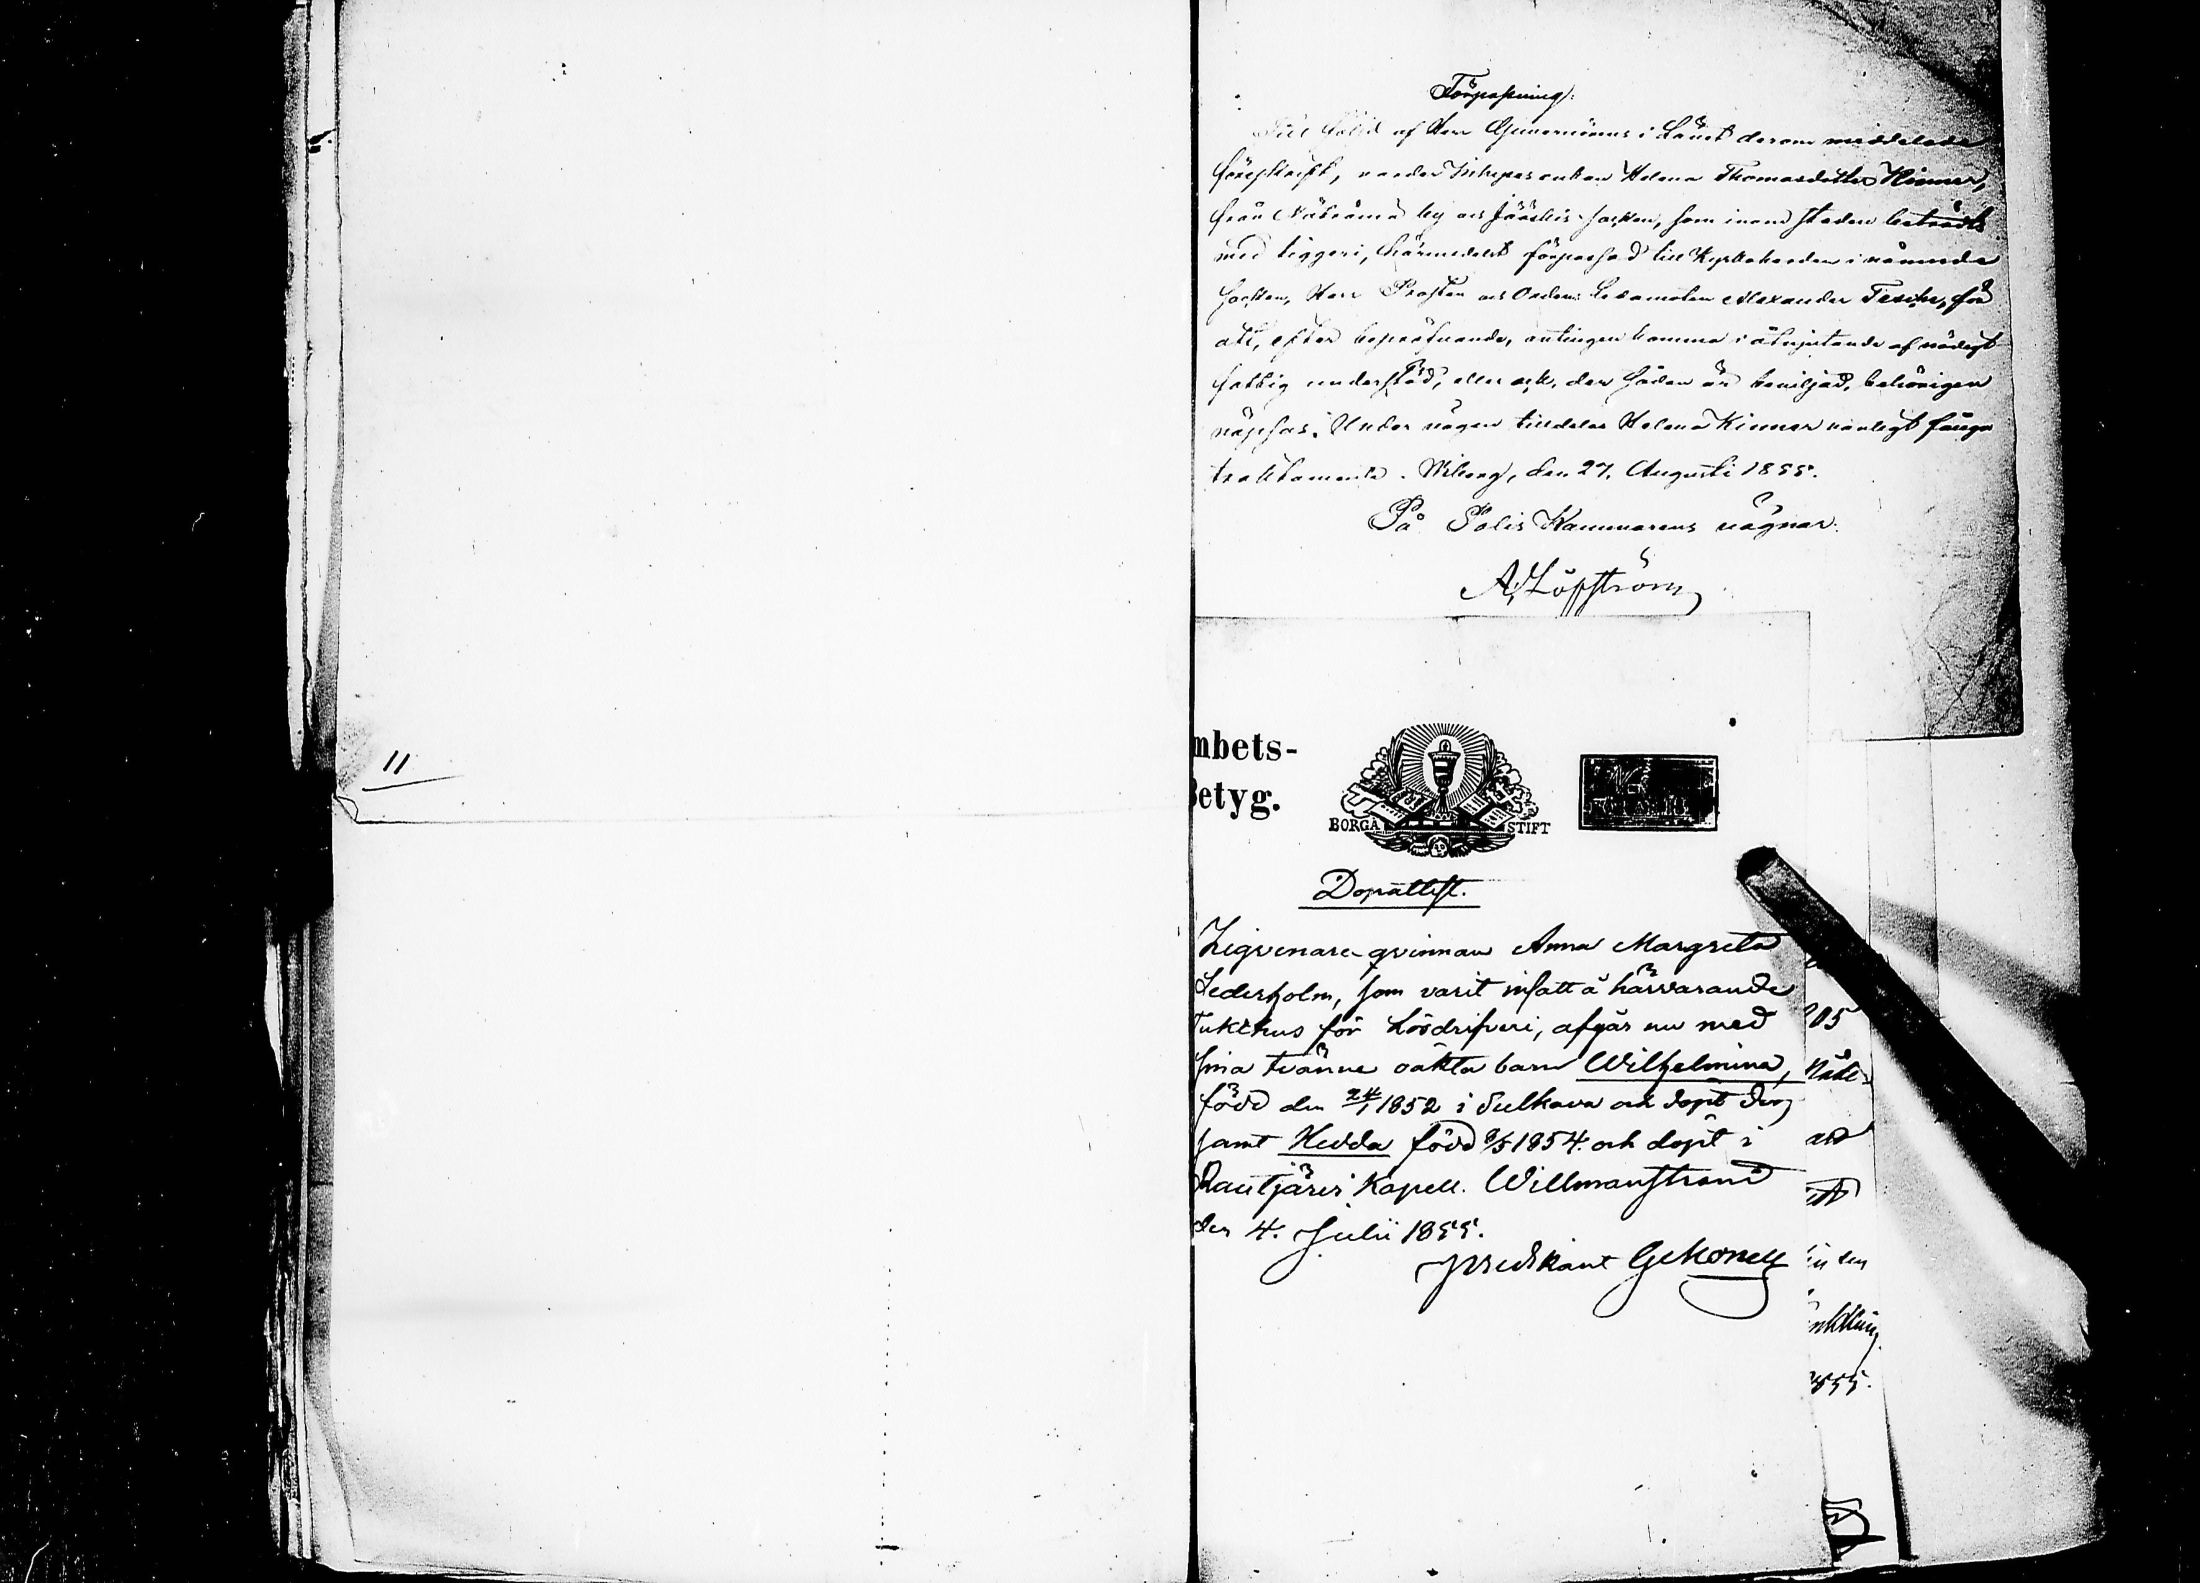 11
Förpassning.
Till följd af Herr Guvernörens i Länet derom meddelade
föreskrift, varder Inhyses enkan Helena Thomasdotter Kinner,
från by och Jääskis socken, som inom staden beträdts
med tiggeri, härmedelst förpassad till Kyrkoherden i nämnde
socken, Herr Prosten och Ordens ledamoten Alexander Tesche, för
att, efter bepröfvande, antingen komma i åtnjutande af nödigt
fattig understöd, eller ock, der sådan är beviljad, behörigen
näpsas. Under vägen tilldelas Helena Kinner vanligt fånge
traktamente. Wiborg, den 27. Augusti 1855.
På Polis Kammarens vägnar:
A. Löfström
mbets-
Betyg.
BORGÅ STIFT
Dopattest.
Zigenare-qvinnan Anna Margreta
Sederholm, som varit insatt å härvarande
Tukthus för Lösdrifveri, afgår nu med
sina tvänne oäkta barn Wilhelmina,
född den 24/1 1852 i Sulkava och döpt der,
samt Hedda född 8/5 1854. och döpt i
Rautjärvi Kapell. Willmanstrand
den 4. Julii 1855.
predikant
05
1855.